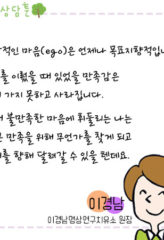 상담톡
적인 마음(ego)은 언제나 목표지향적입니
를 이뤘을 때 있었을 만족감은
가지 못하고 사라집니다.
불만족한 마음에 휘둘리는 나는
만족을 위해 무언가를 찾게 되고
를 향해 달려갈 수 있을 텐데요.
이경남
이경남명상연구치유소 원장